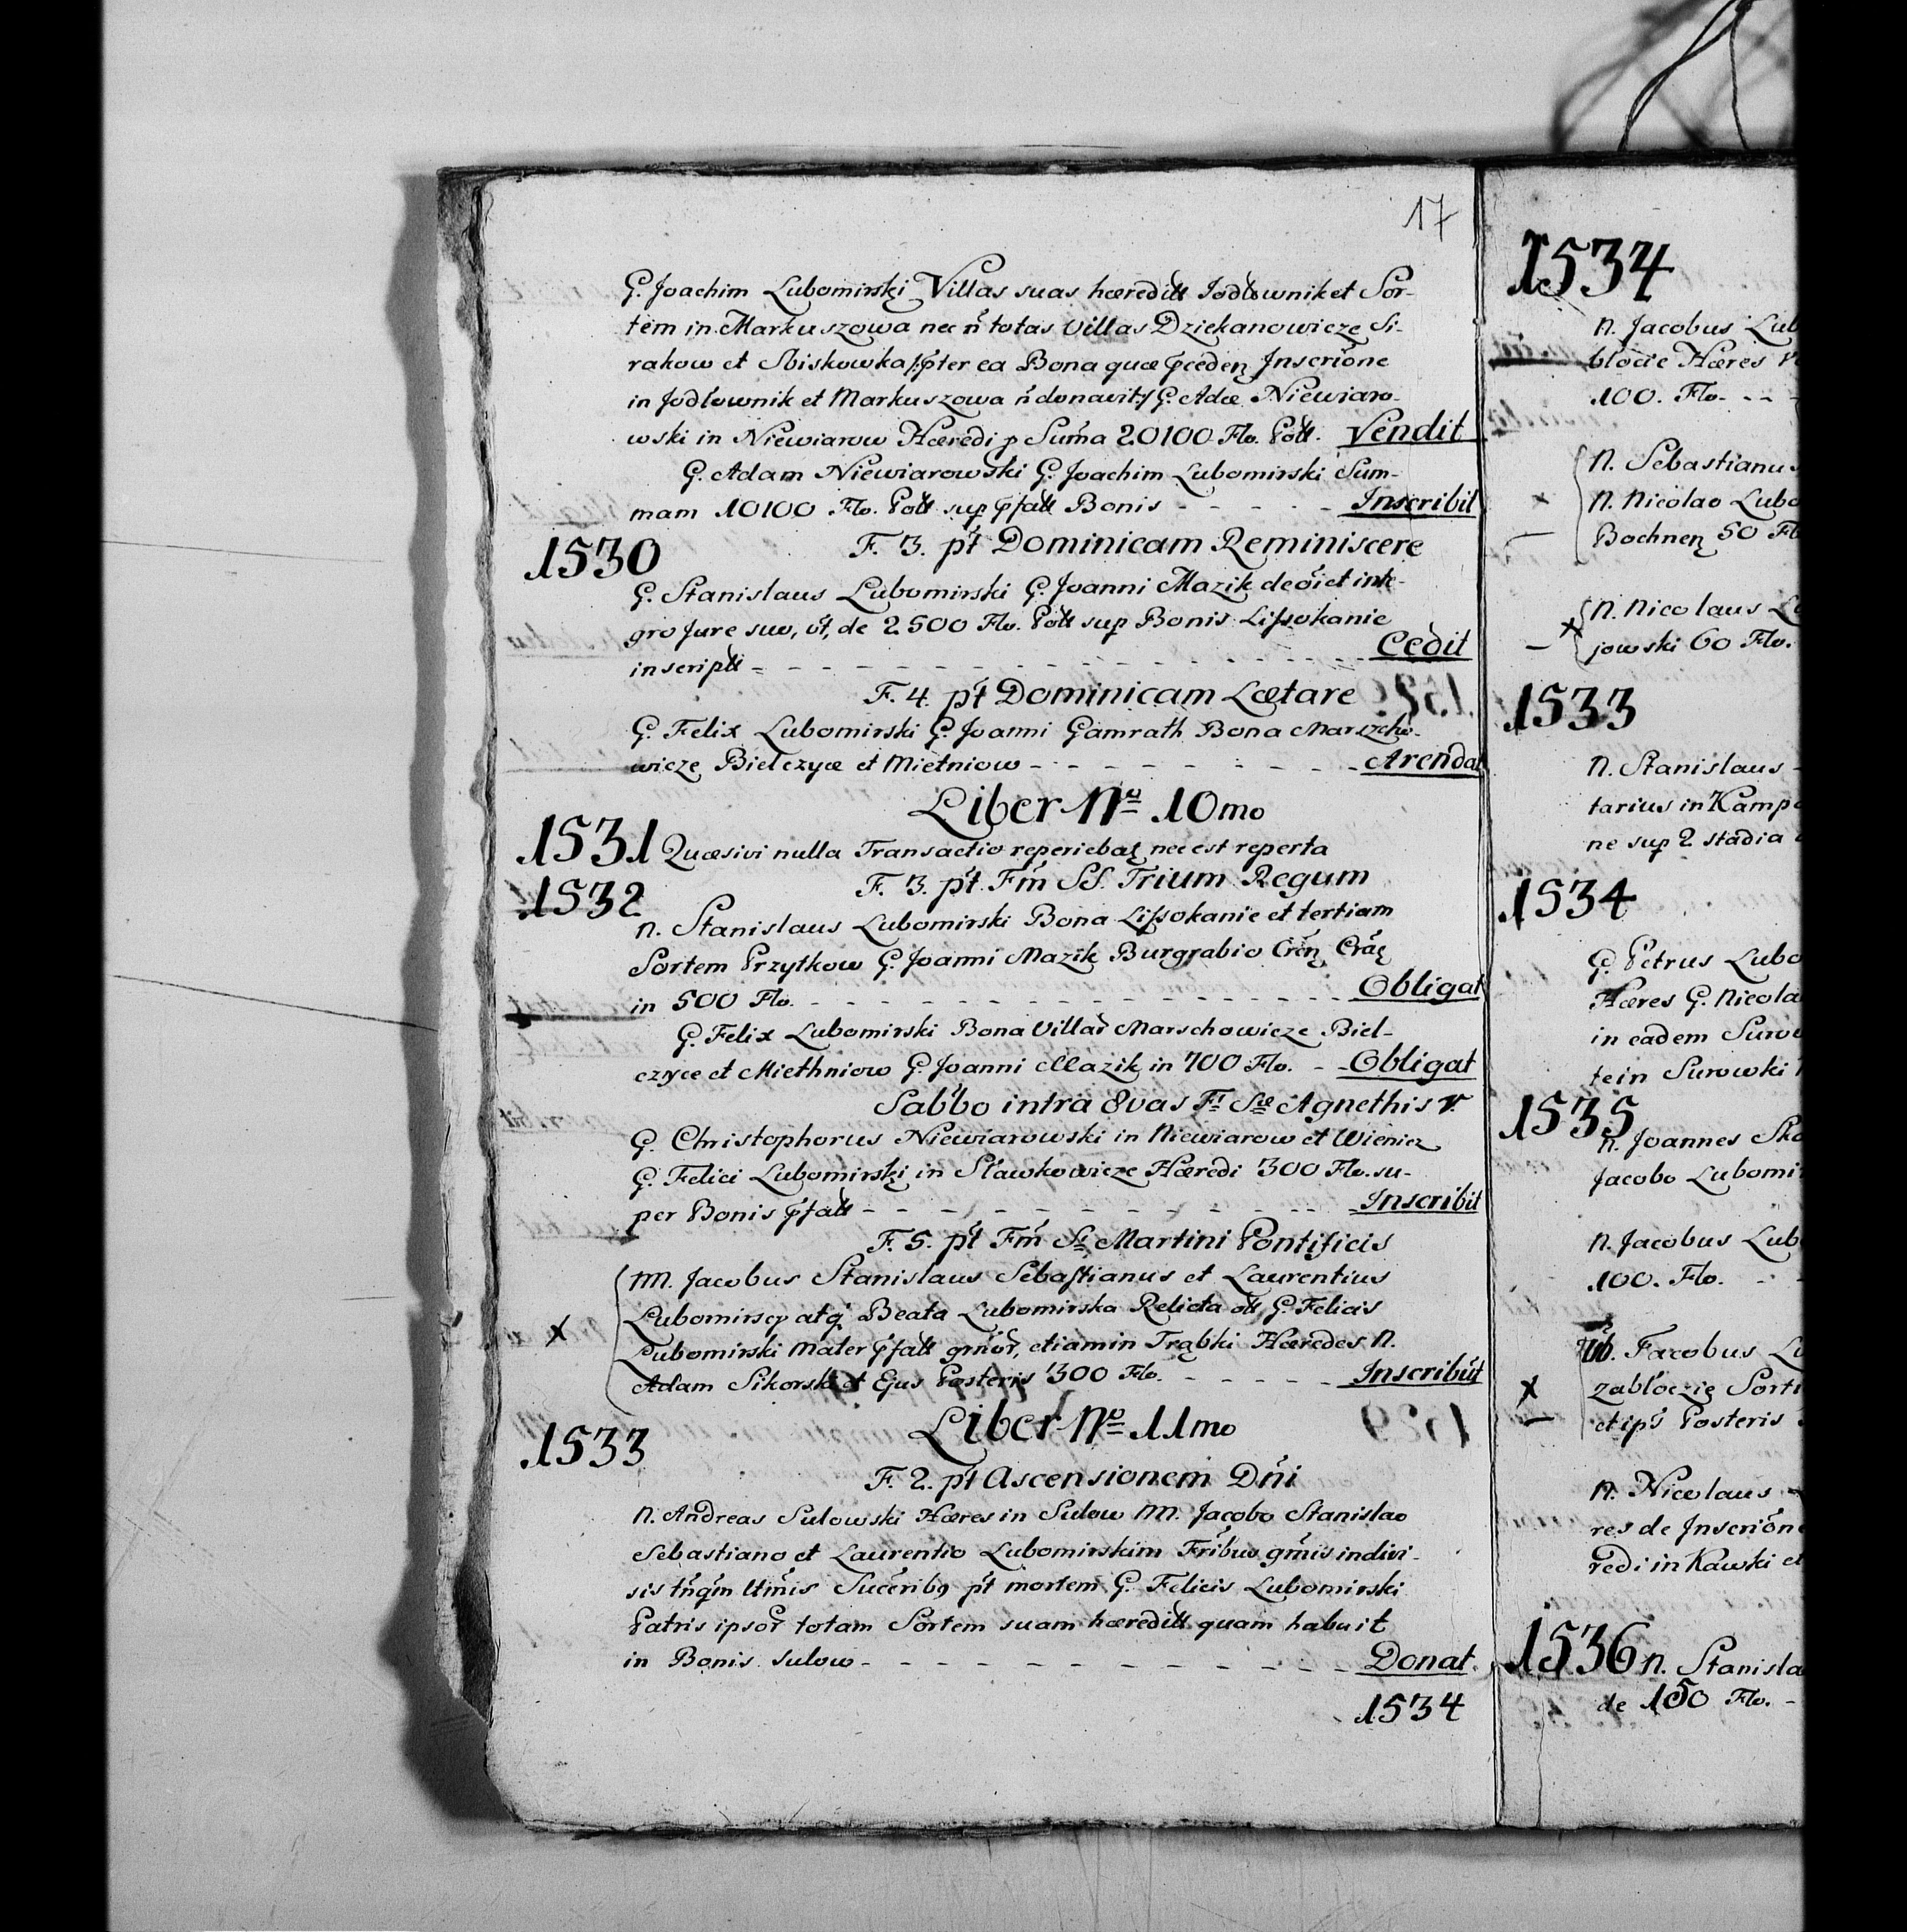 17
G. Joachim Lubomirski Villas suas hæreditt Jodłownik et Sor-
tem in Markuszowa nec ñ totas Villas Dziekanowicze Si-
rakow et Sbiskowka /:pter ea Bona quæ pceden Inscrióne
in Jodłownik et Markuszowa ñ donavit:/ G. Adæ Niewiaro-
wski in Niewiarow Hæredi p Suma 20100 Flo. Poll. Vendit
G. Adam Niewiarowski G. Joachim Lubomirski Sum-
mam 10100 Flo. Poll sup pfatt Bonis - - - - - Inscribit
1530 F. 3. pt Dominicam Reminiscere
G. Stanislaus Lubomirski G. Joanni Mazik de oi et inte-
gro Jure suo, ut, de 2500 Flo. Poll sup Bonis Lissokanie
inscriptt - - - - - Cedit
F. 4. pt Dominicam Lætare
G. Felix Lubomirski G. Joanni Gamrath Bona Marszcho-
wicze Bielczyce et Mietniow - - - - - Arendat
Liber No 10mo
1531 Quæsivi nulla Transactio reperiebat nec est reperta
1532 F. 3. pt. Fm SS. Trium Regum
N. Stanislaus Lubomirski Bona Lissokanie et tertiam
Sortem Przytkow G. Joanni Mazik Burgrabio Cren Crac
in 500 Flo. - - - - - Obligat
G. Felix Lubomirski Bona Villar Marschowicze Biel-
czyce et Miethniow G. Joanni Mazik in 700 Flo. - - Obligat
Sabbo intra 8vas Fi Stæ Agnethis V.
G. Christophorus Niewiarowski in Niewiarow et Wieniez
G. Felici Lubomirski in Sławkowicze Hæredi 300 Flo. su-
per Bonis pfatt - - - - - Inscribit
F. 5. pt Fm Sti Martini Pontificis
NN. Jacobus Stanislaus Sebastianus et Laurentius
Lubomirscy atq Beata Lubomirska Relicta olt G. Felicis
x Lubomirski Mater pfatt gmor, etiam in Trąbki Hæredes N.
Adam Sikorski et Ejus Posteris 300 Flo. - - - - - Inscribut
Liber No 11mo
1533
F. 2. pt Ascensionem Dni
N. Andreas Sulowski Hæres in Sulow NN. Jacobo Stanislao
Sebastiano et Laurentio Lubomirskim Fribus gmis indivi-
sis tnqm ltmis Succeribq pt mortem G. Felicis Lubomirski
Patris ipsor totam Sortem suam hæreditt quam habuit
in Bonis Sulow - - - - - Donat.
1534
1534
N. Jacobus Lub
błocie Hæres
100. Flo. - -
N. Sebastianus
x N. Nicolao Lubo
Bochnen 50 Fl
N. Nicolaus
x jowski 60 Flo.
1533
N. Stanislaus
tarius in Kamp
ne sup 2 stadia
1534
G. Petrus Lubo
Hæres G. Nicola
in eadem Surow
tein Surowski
1535
N. Joannes Sko
Jacobo Lubomi
N. Jacobus Lub
100. Flo. -
Jacobus
x zabłoczię Sorti
et ips Posteris
N. Nicolaus
res de Inscrióne
redi in Kawski et
1536 N. Stanisla
de 150 Flo. -